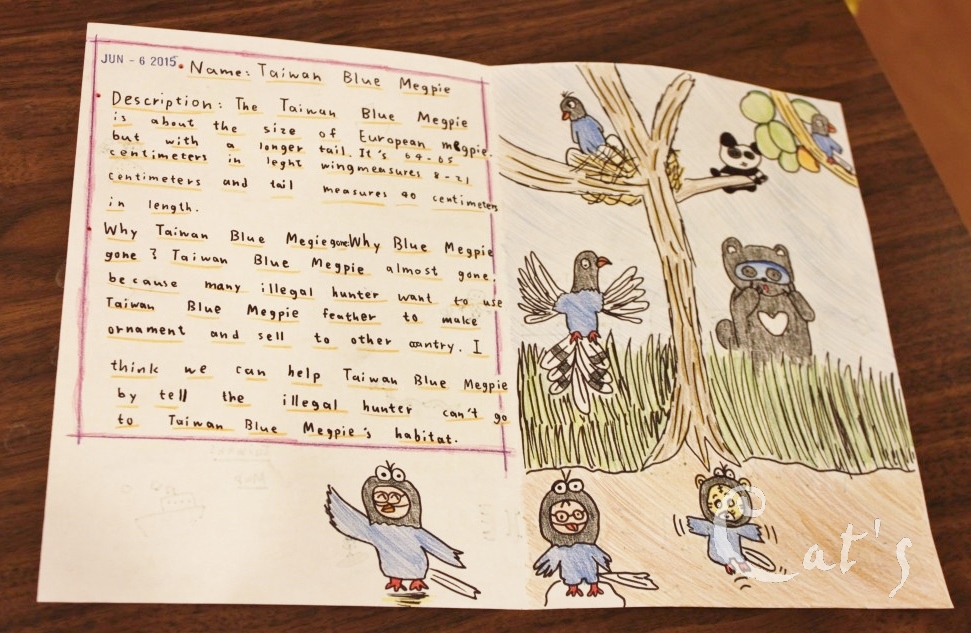 JUN - 6 2015
Name: Taiwan Blue Megpie
Description: The Taiwan Blue Megpie
is about the size of European megpie.
but with a longer tail. It's 64-65
centimeters in leght wingmeasures 8-21
centimeters and tail measures 40 centimeters
in length.
Why Taiwan Blue Megiegone Why Blue Megpie
gone? Taiwan Blue Megpie almost gone.
because many illegal hunter want to use
Taiwan Blue Megpie feather to make
ornament and sell to other cantry. I
think we can help Taiwan Blue Megpie
by tell the illegal hunter can't go
to Taiwan Blue Megpie's habitat.
Cat's